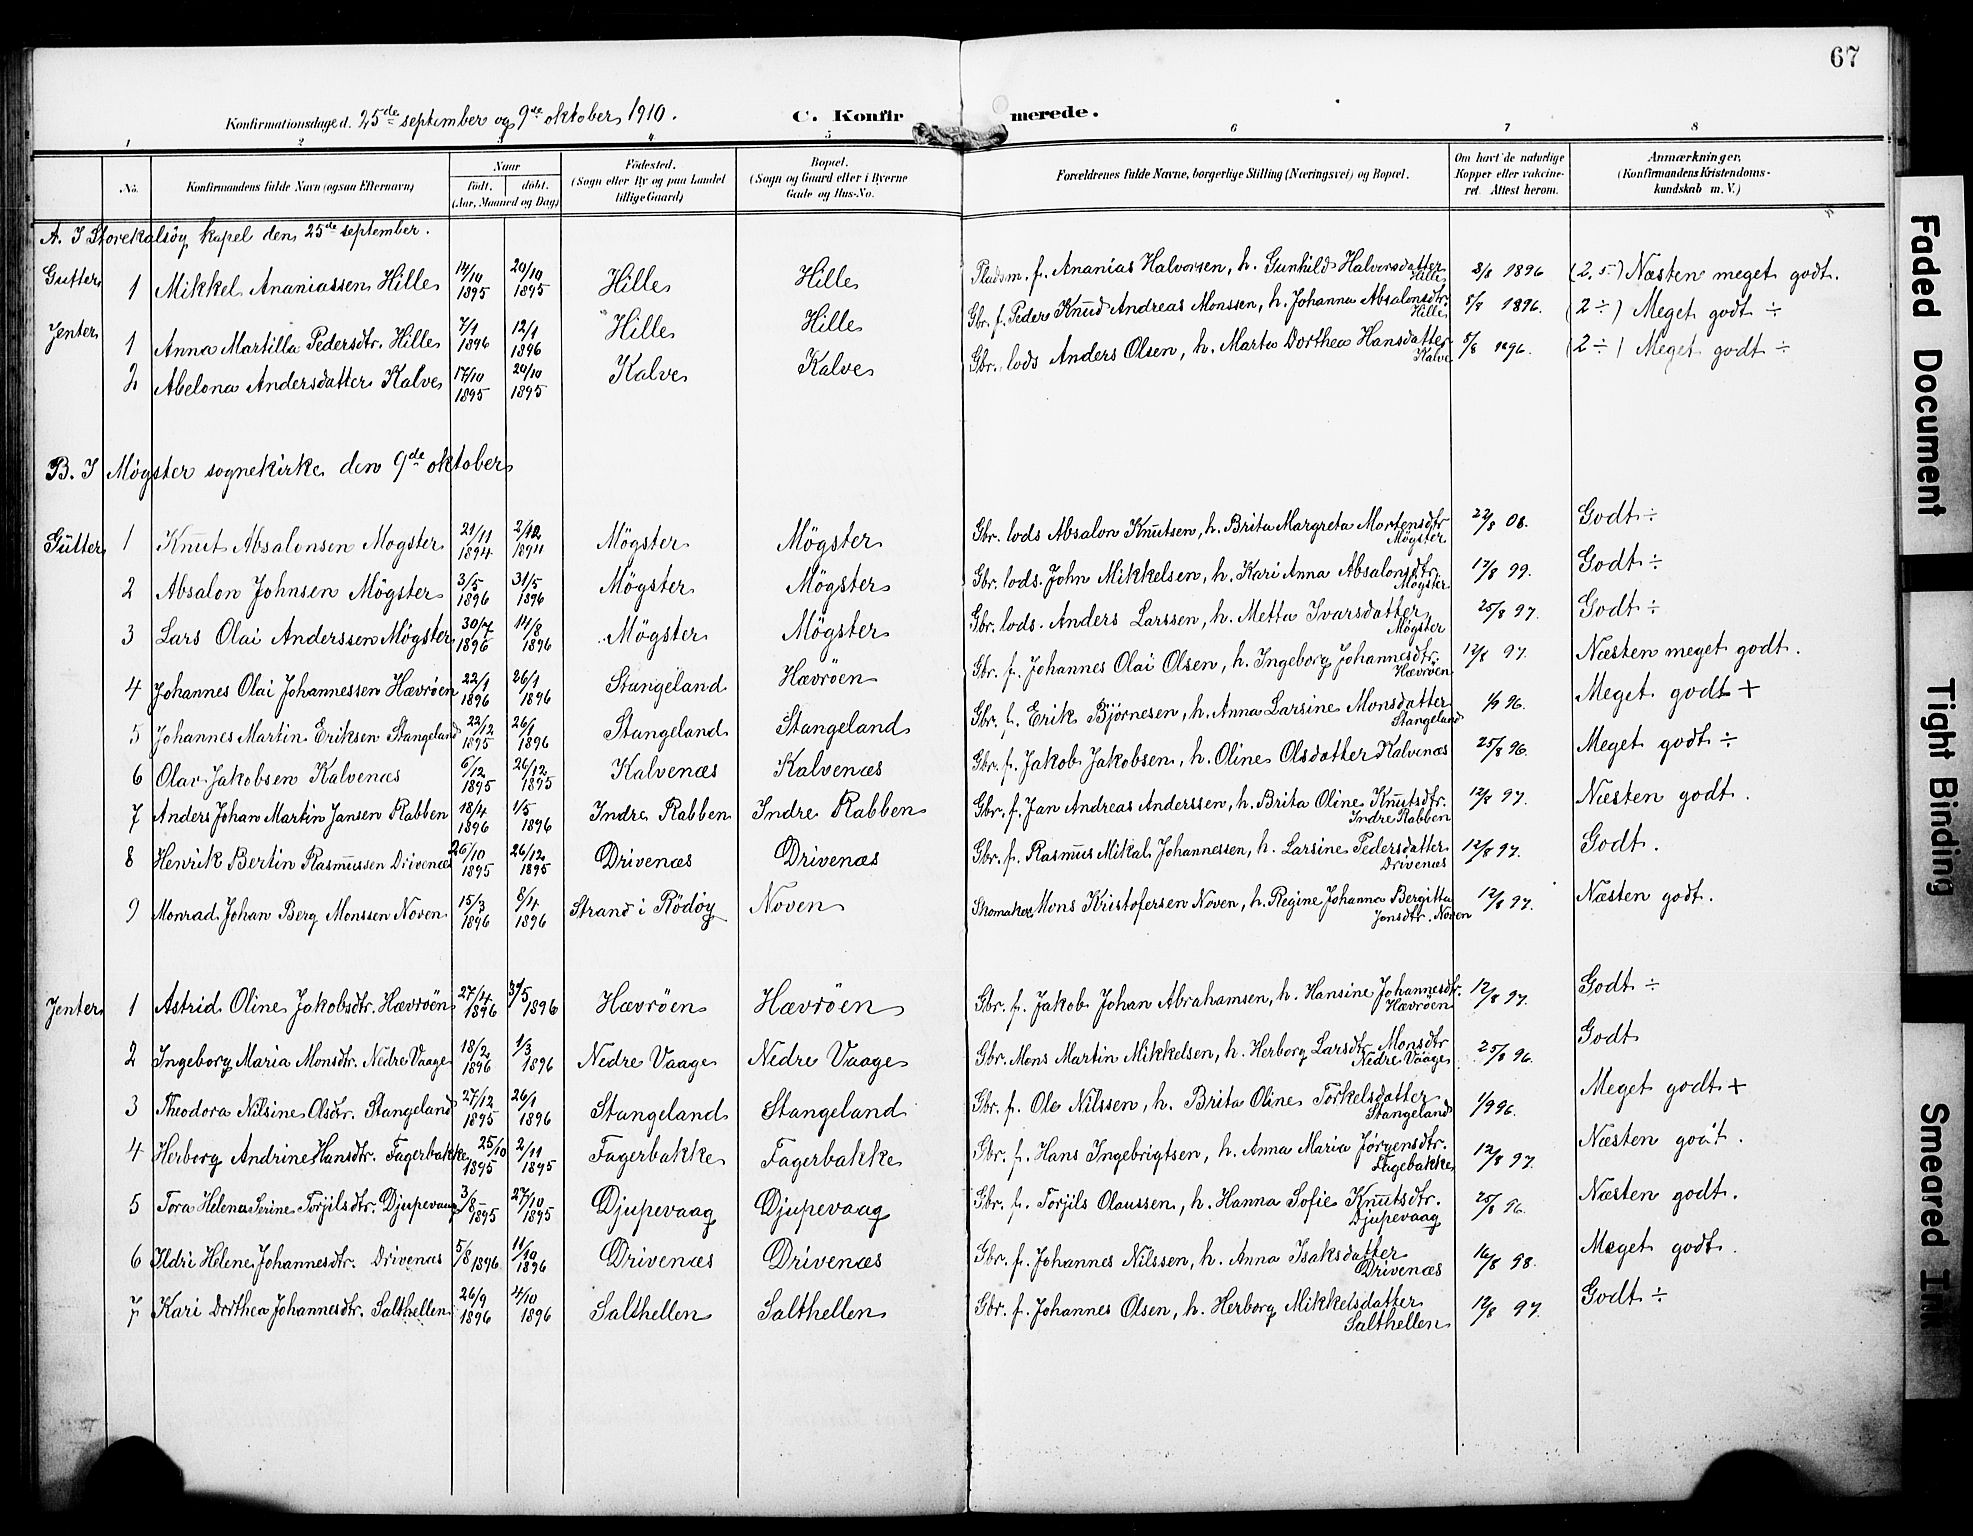 67
Konfirmationsdage d. 25de september og 9de oktober 1910. C. Konfirmerede.
1 2 3 4 5 6 7 8
No. Konfirmandens fulde Navn (ogsaa Efternavn) Naar født. døbt. (Aar, Maaned og Dag) Fødested. (Sogn eller By og paa Landet tillige Gaard) Bopæl. (Sogn og Gaard eller i Byerne Gade og Hus-No. Forældrenes fulde Navne, borgerlige Stilling (Næringsvei) og Bopæl. Om havt de naturlige Kopper eller vakcineret. Attest herom. Anmærkninger. (Konfirmandens Kristendomskundskab m. V.)
A. I Storekalsøy kapel den 25de september.
Gutter 1 Mikkel Ananiassen Hille 14/10 1895 20/10 1895 Hille Hille Pladsm. f. Ananias Halvorsen, h. Gunhild Halvorsdatter Hille 8/8 1896 (2,5) Næsten meget godt.
Jenter 1 Anna Martilla Pedersdtr. Hille 7/1 1896 12/1 1896 Hille Hille Gbr. f. Peder Knud Andreas Monssen, h. Johanna Absalonsdtr. Hille 8/8 1896. (2 ÷) Meget godt ÷
2 Abelona Andersdatter Kalve 17/10 1895 20/10 1895 Kalve Kalve Gbr. lods Anders Olsen, h. Marta Dorthea Hansdatter Kalve 8/8 1896. (2 ÷) Meget godt ÷
B. I Møgster sognekirke den 9de oktober
Gutter 1 Knut Absalonsen Møgster 21/11 1894 2/12 1894 Møgster Møgster Gbr. lods Absalon Knutsen, h. Brita Margreta Mortensdtr Møgster 22/8 08. Godt ÷
2 Absalon Johnsen Møgster 3/5 1896 31/5 1896 Møgster Møgster Gbr. lods. John Mikkelsen, h. Kari Anna Absalonsdtr. Møgster 17/8 99. Godt ÷
3 Lars Olai Anderssen Møgster 30/7 1896 14/8 1896 Møgster Møgster Gbr. lods. Anders Larssen, h. Metta Ivarsdatter Møgster 25/8 97. Godt ÷
4 Johannes Olai Johannessen Hævrøen 22/1 1896 26/1 1896 Stangeland Hævrøen Gbr. f. Johannes Olai Olsen, h. Ingeborg Johannesdtr. Hævrøen 12/8 97. Næsten meget godt.
5 Johannes Martin Eriksen Stangeland 22/12 1895 26/1 1896 Stangeland Stangeland Gbr. f. Erik Bjørnesen, h. Anna Larsine Monsdatter Stangeland 1/9 96. Meget godt +
6 Olav Jakobsen Kalvenæs 6/12 1895 26/12 1895 Kalvenæs Kalvenæs Gbr. f. Jakob Jakobsen, h. Oline Olsdatter Kalvenæs 25/8 96. Meget godt ÷
7 Anders Johan Martin Jansen Rabben 18/4 1896 1/5 1896 Indre Rabben Indre Rabben Gbr. f. Jan Andreas Anderssen, h. Brita Oline Knutsdtr. Indre Rabben 12/8 97. Næsten godt.
8 Henrik Bertin Rasmussen Drivenæs 26/10 1895 26/12 1895 Drivenæs Drivenæs Gbr. f. Rasmus Mikal Johannessen, h. Larsine Pedersdatter Drivenæs 12/8 97. Godt.
9 Monrad Johan Berg Monssen Noven 15/3 1896 8/4 1896 Strand i Rødøy Noven Skomaker Mons Kristofersen Noven, h. Regine Johanna Bergitta Jonsdtr. Noven 12/8 97. Næsten godt.
Jenter 1 Astrid Oline Jakobsdtr. Hævrøen 27/4 1896 31/5 1896 Hævrøen Hævrøen Gbr. f. Jakob Johan Abrahamsen, h. Hansine Johannesdtr. Hævrøen 12/8 97. Godt ÷
2 Ingeborg Maria Monsdtr. Nedre Vaage 18/2 1896 1/3 1896 Nedre Vaage Nedre Vaage Gbr. Mons Martin Mikkelsen, h. Herborg Larsdtr Monsdtr Nedre Vaage 25/8 96. Godt
3 Theodora Nilsine Olsdtr. Stangeland 27/12 1895 26/1 1896 Stangeland Stangeland Gbr. f. Ole Nilssen, h. Brita Oline Torkelsdatter Stangeland 1/9 96. Meget godt +
4 Herborg Andrine Hansdtr. Fagerbakke 25/10 1895 2/11 1895 Fagerbakke Fagerbakke Gbr. f. Hans Ingebrigtsen, h. Anna Maria Jørgensdtr. Fagebakke 12/8 97. Næsten godt.
5 Tora Helena Serine Torjilsdtr. Djupevaag 3/8 1895 27/10 1895 Djupevaag Djupevaag Gbr. f. Torjils Olaussen, h. Hanna Sofie Knutsdtr. Djupevaag 25/8 96. Næsten godt.
6 Ildri Helene Johannesdtr. Drivenæs 5/8 1896 11/10 1896 Drivenæs Drivenæs Gbr. f. Johannes Nilssen, h. Anna Isaksdatter Drivenæs 16/8 98. Meget godt.
7 Kari Dorthea Johannesdtr. Salthellen 26/9 1896 4/10 1896 Salthellen Salthellen Gbr. f. Johannes Olsen, h. Herborg Mikkelsdatter Salthellen 12/8 97. Godt ÷
Faded Document
Tight Binding
Smeared Ink